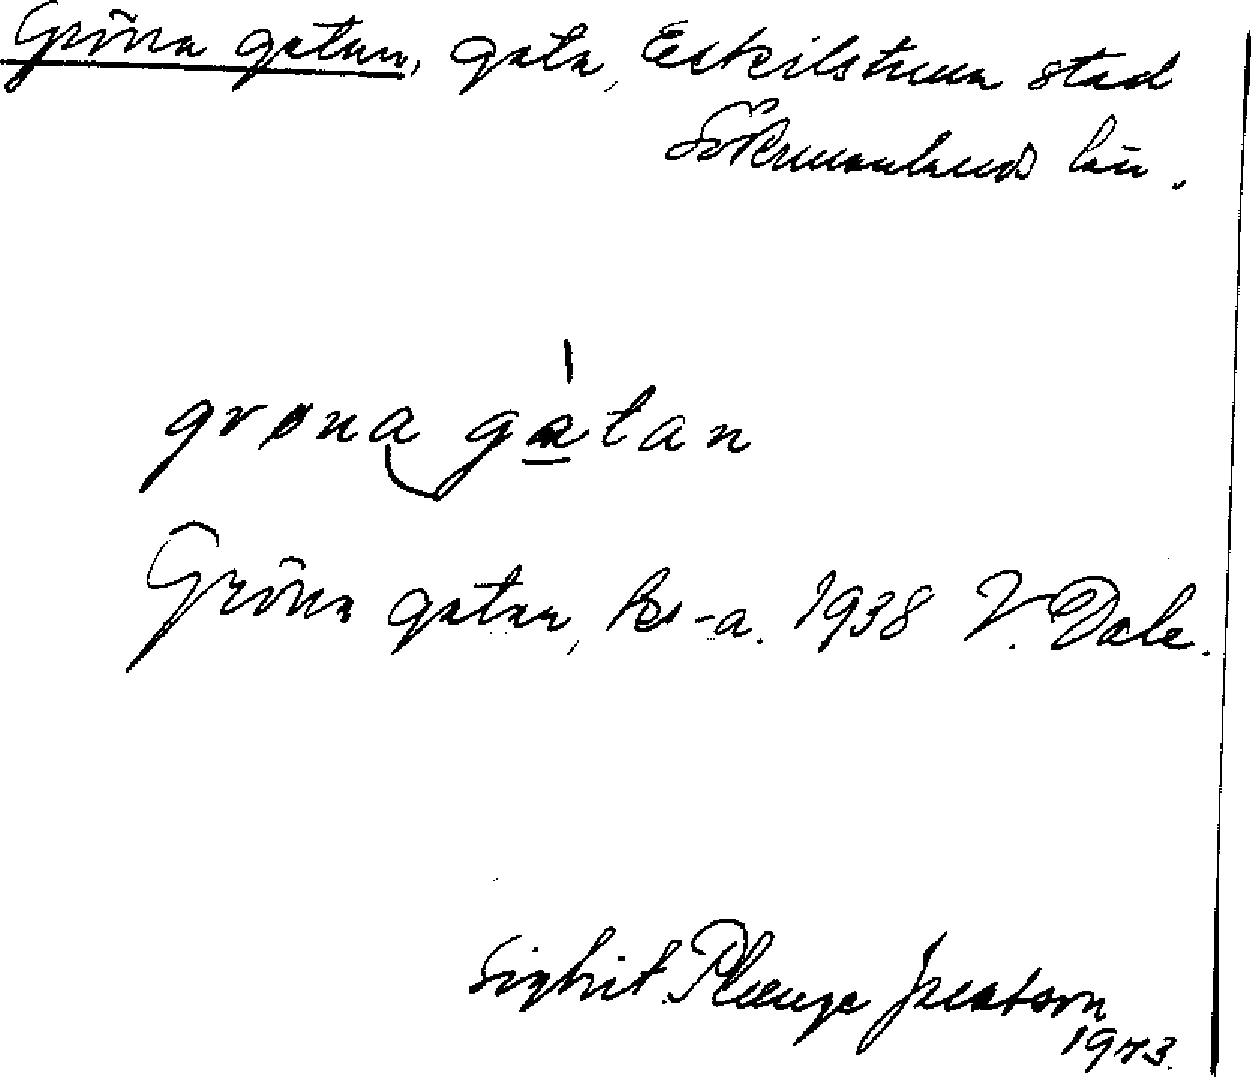 Gröna gatan, gata, Eskilstuna stad
Södermanlands län.
grøna gatan
Gröna gatan, ks-a. 1938 V. Dale.
Sigbrit Plænge Jacobson
1973.